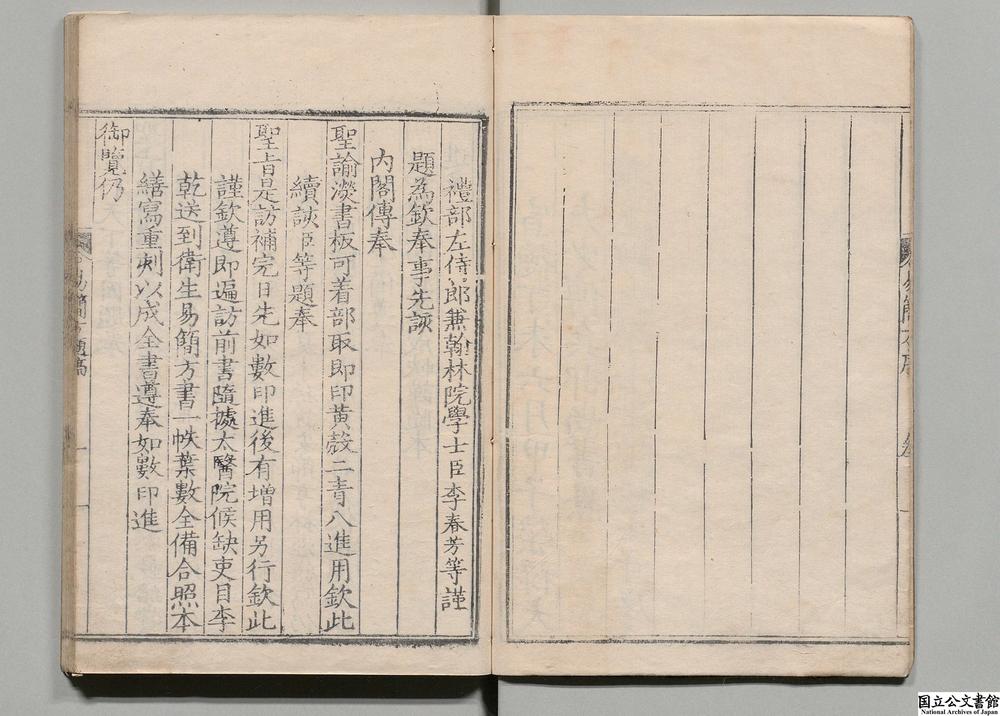 禮部左侍郎兼翰林院學士臣李春芳等謹
題為欽奉事先該
內閣傳奉
聖諭淡書板可着部取即印黄殼二青八進用欽此
續該臣等題奉
聖旨是訪補完日先如數印進後有增用另行欽此
謹欽遵即遍訪前書隨據太醫院候缺吏目李
乾送到衛生易簡方書一帙葉數全備合照本
繕寫重刻以成全書遵奉如數印進
御覽仍
易簡方題稿
一
国立公文書館
National Archives of Japan